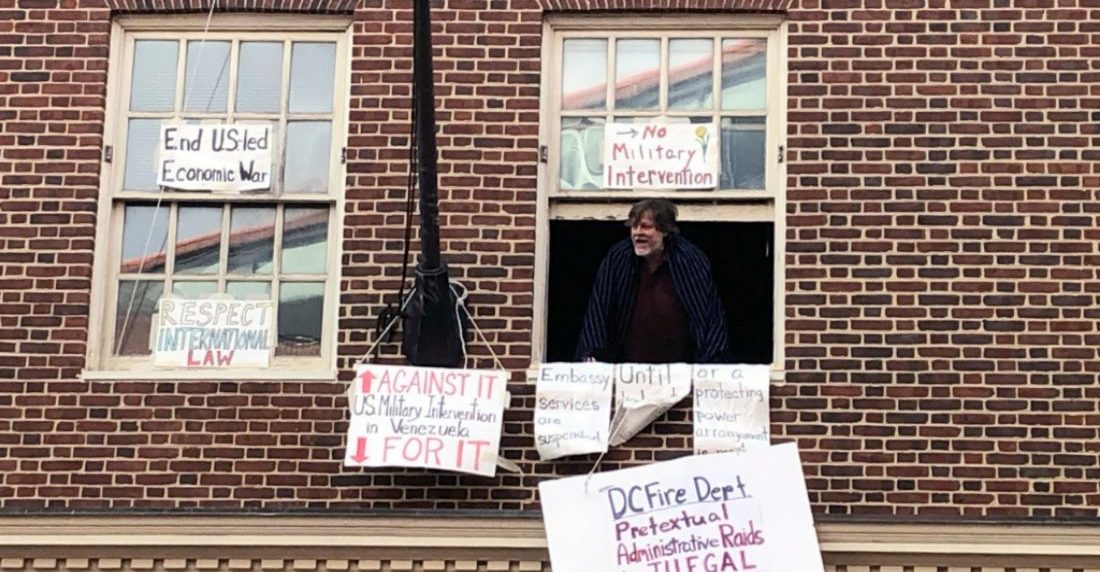 End U.S-led
Economic War
→ No
Military
Intervention
RESPECT
INTERNATIONAL
LAW
↑ AGAINST IT
U.S. Military Intervention
in Venezuela
↓ FOR IT
Embassy
services
are
suspended
Until
or a
protecting
power
arrangement
DC Fire Dept.
Pretextual
Administrative Raids
ILLEGAL